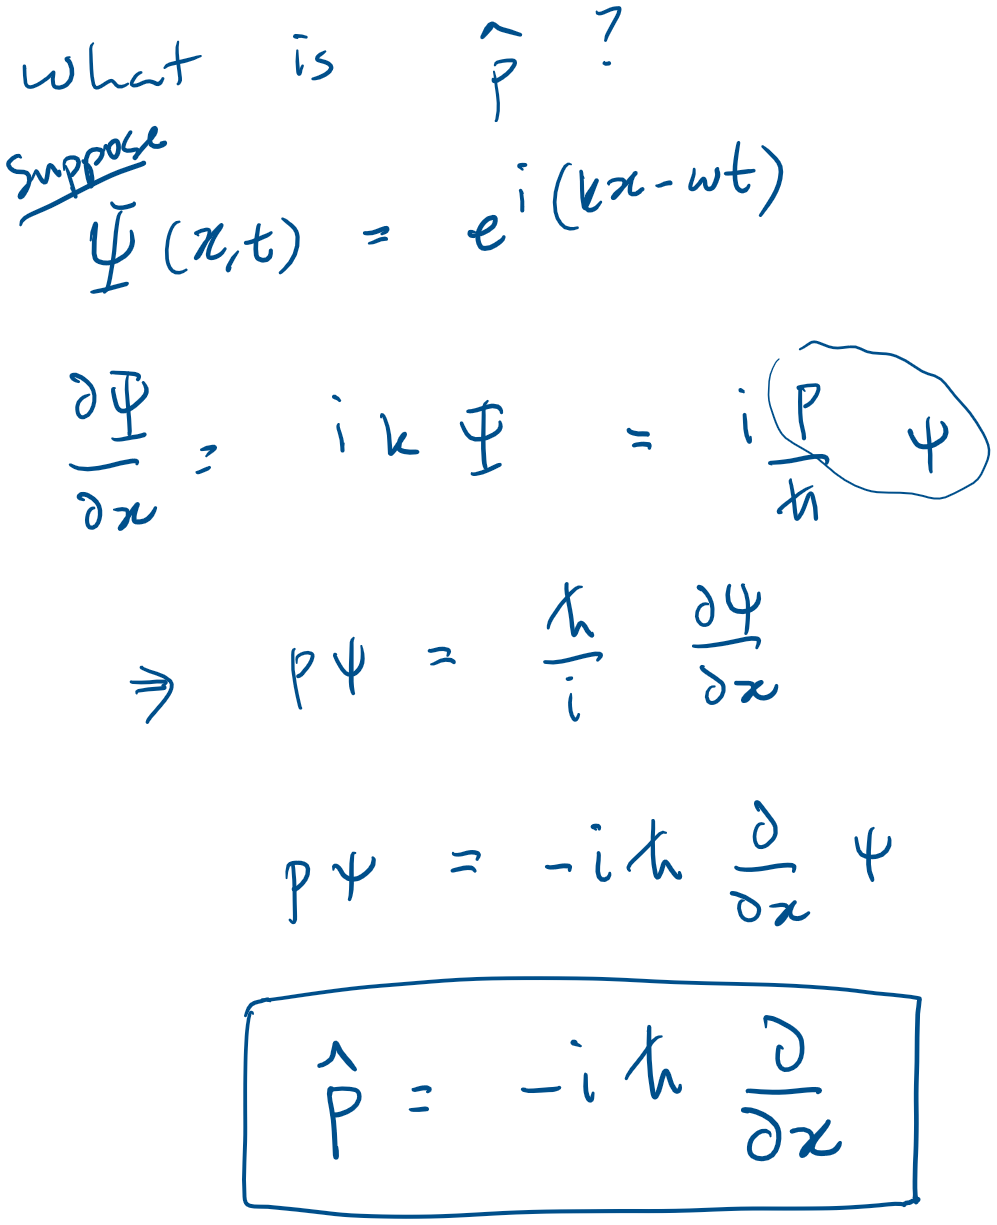 What is p̂ ?
Suppose
Ψ(x,t) = e^{i(kx-ωt)}
∂Ψ/∂x = i k Ψ = i p/ħ ψ
⇒ pψ = ħ/i ∂ψ/∂x
pψ = -iħ ∂/∂x ψ
p̂ = -iħ ∂/∂x